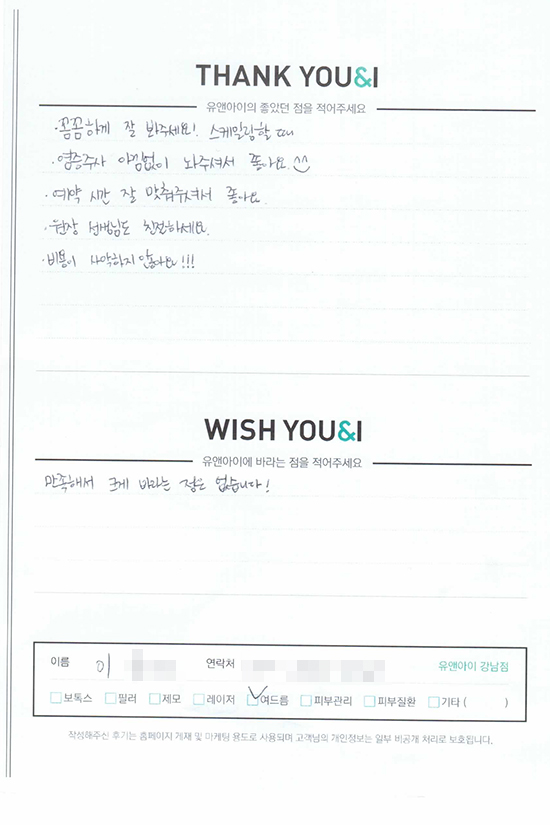 THANK YOU&I
유앤아이의 좋았던 점을 적어주세요
· 꼼꼼하게 잘 봐주세요! 스케일링할 때
· 염증주사 아낌없이 놔주셔서 좋아요 ^^
· 예약 시간 잘 맞춰주셔서 좋아요
· 원장 선생님도 친절하세요.
· 비용이 사악하지 않아요!!!
WISH YOU&I
유앤아이에 바라는 점을 적어주세요
만족해서 크게 바라는 점은 없습니다!
이름 이 연락처 유앤아이 강남점
보톡스 필러 제모 레이저 여드름 피부관리 피부질환 기타 ( )
작성해주신 후기는 홈페이지 게재 및 마케팅 용도로 사용되며 고객님의 개인정보는 일부 비공개 처리로 보호됩니다.